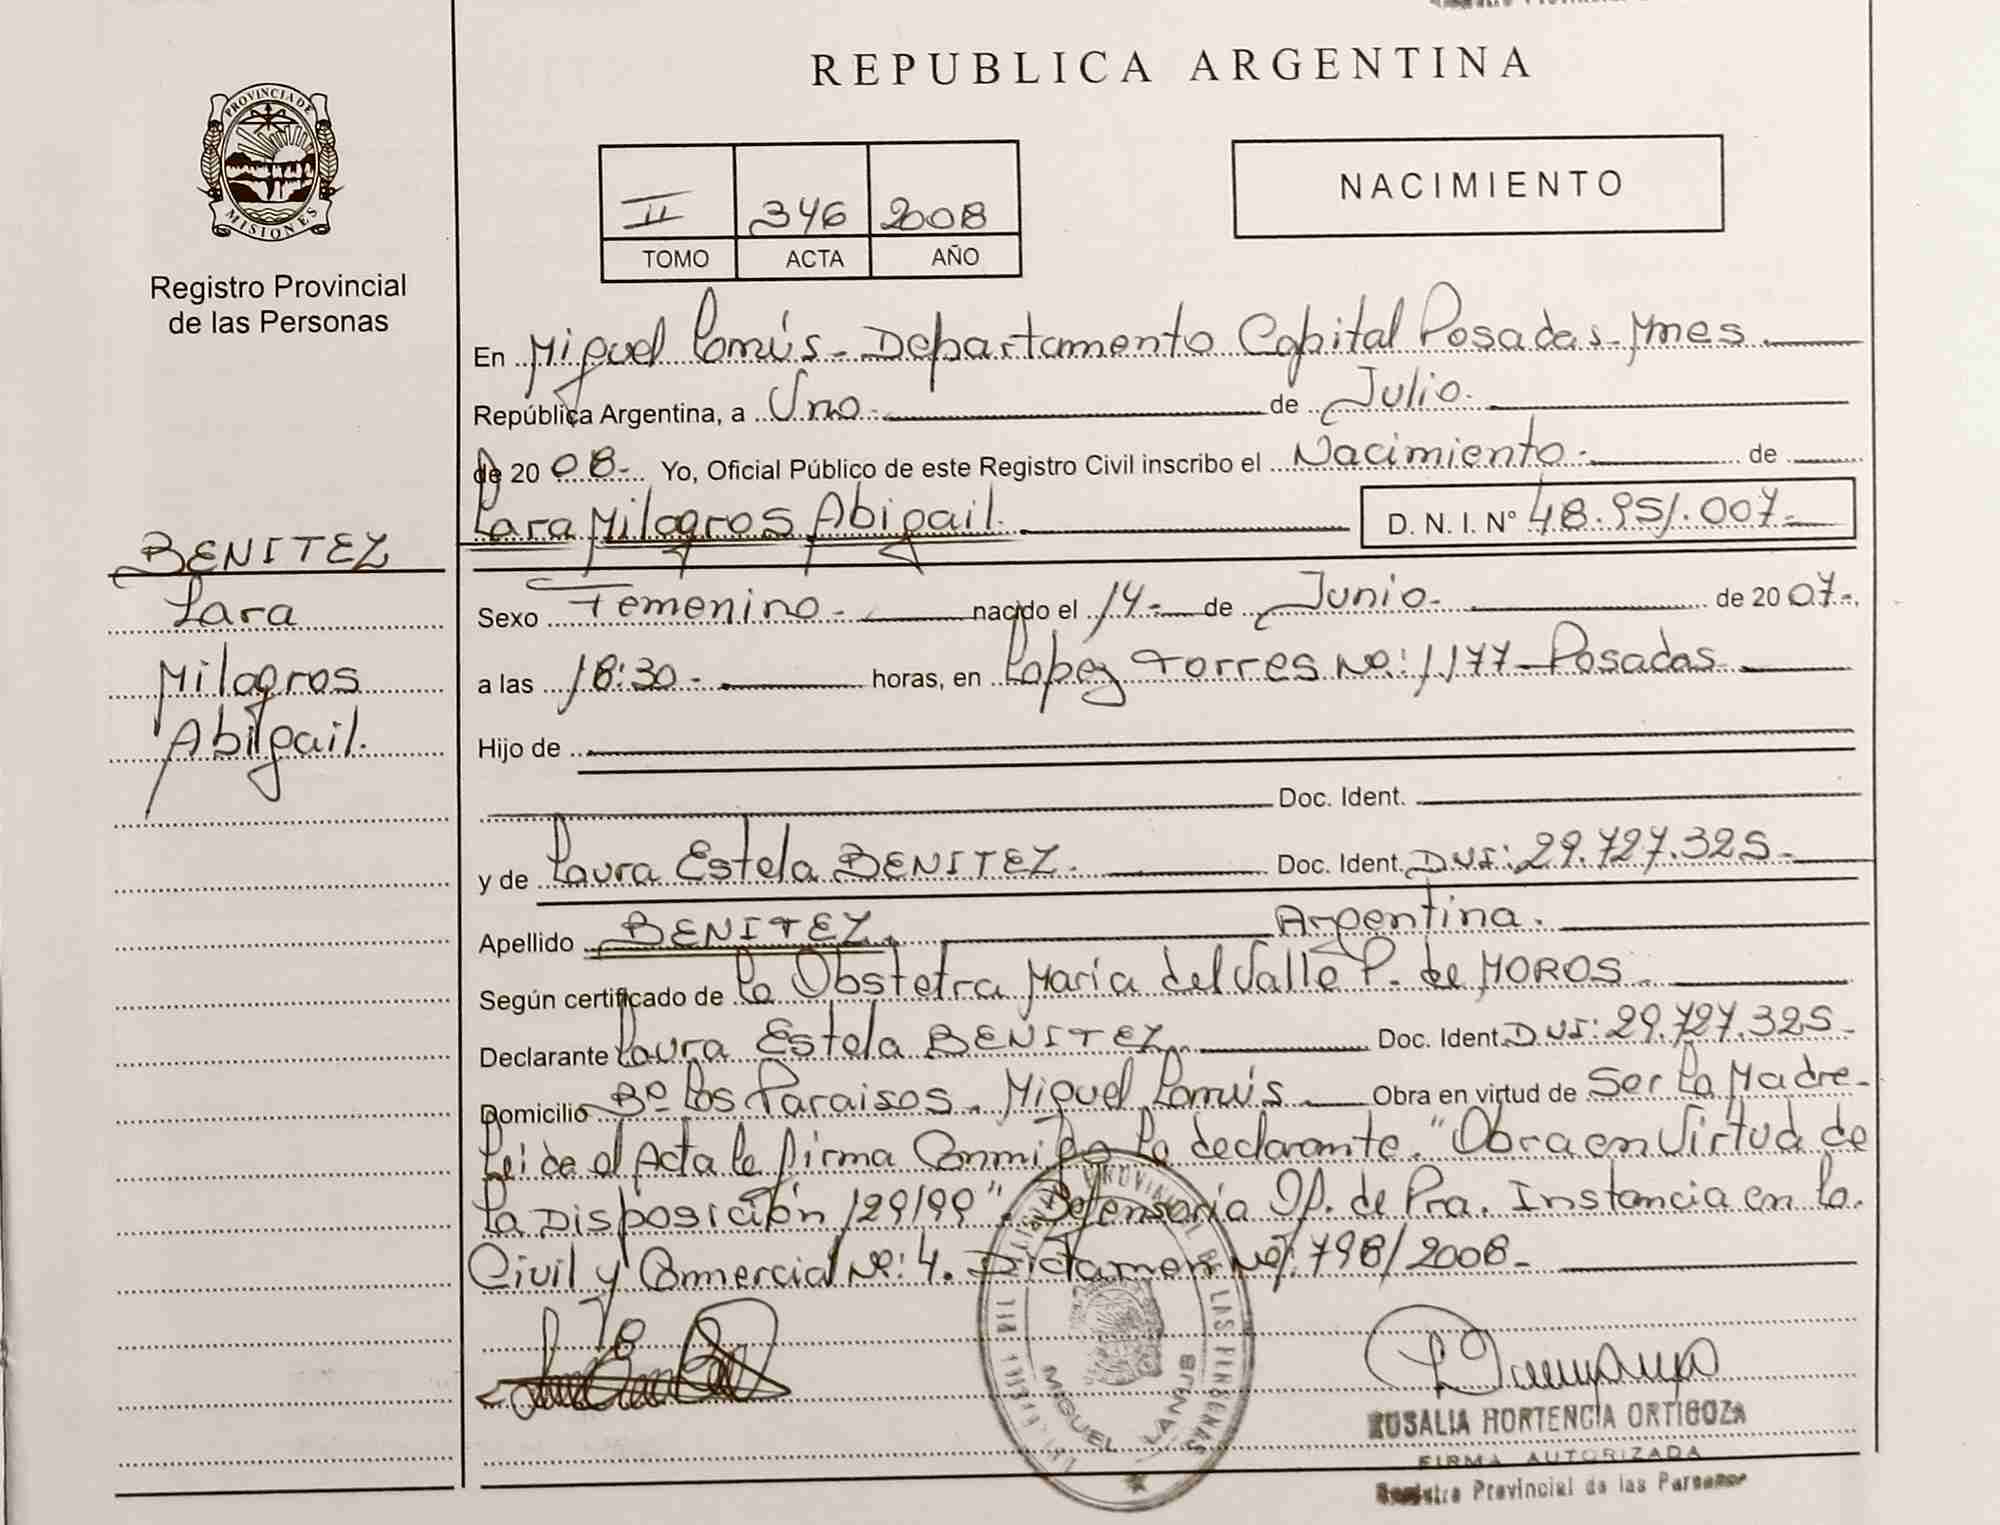 REPUBLICA ARGENTINA
PROVINCIA DE
MISIONES
Registro Provincial
de las Personas
II 346 2008
TOMO ACTA AÑO
NACIMIENTO
En Miguel Lanús - Departamento Capital Posadas - Mnes
República Argentina, a Uno. de Julio.
de 20 08.- Yo, Oficial Público de este Registro Civil inscribo el Nacimiento.- de
Lara Milagros Abigail. D. N. I. N° 48.951.007.-
BENITEZ
Lara
Milagros
Abigail.
Sexo Femenino.- nacido el 14.- de Junio.- de 2007.-
a las 18:30.- horas, en Lopez Torres Nº: 1.177 - Posadas
Hijo de
Doc. Ident.
y de Laura Estela BENITEZ. Doc. Ident. DNI: 29.727.325.-
Apellido BENITEZ. Argentina.
Según certificado de la Obstetra María del Valle P. de MOROS
Declarante Laura Estela BENITEZ. Doc. Ident. DNI: 29.727.325.-
Domicilio Bº Los Paraisos. Miguel Lanús Obra en virtud de Ser la Madre.-
Leida el Acta la firma Conmigo la declarante. "Obra en Virtud de
la Disposición 129/99". Defensoría Of. de Pra. Instancia en lo
Civil y Comercial Nº: 4. Dictamen Nº: 798/2008.-
MIGUEL LANUS
ROSALIA HORTENCIA ORTIGOZA
FIRMA AUTORIZADA
Registro Provincial de las Personas